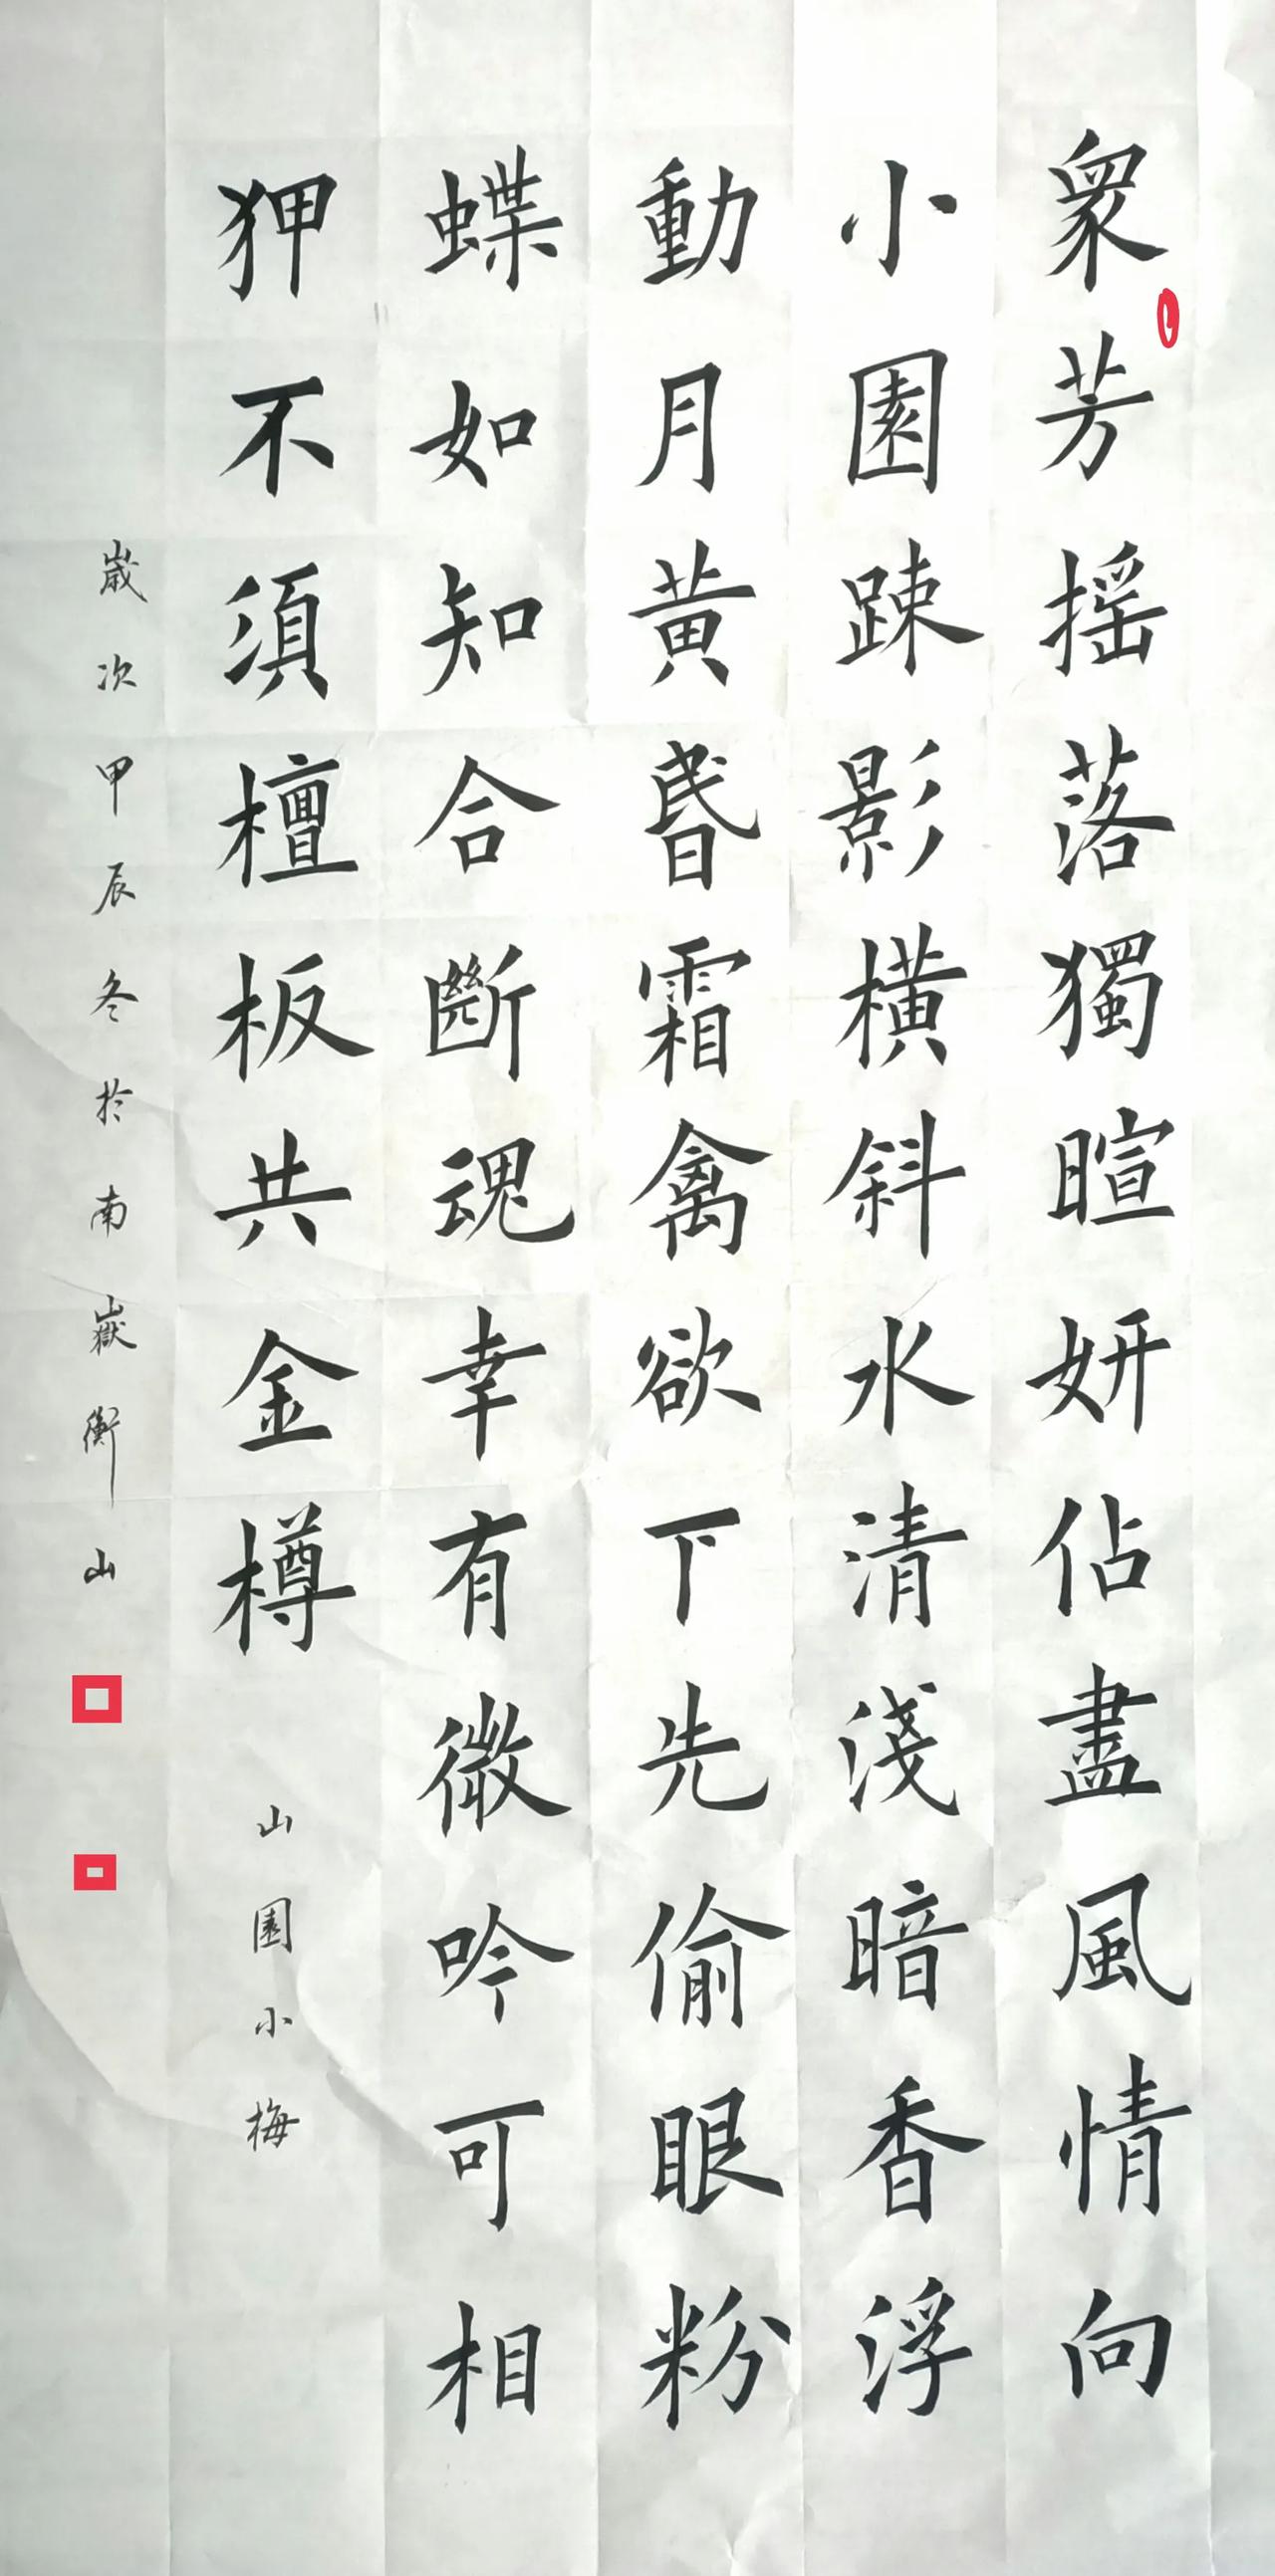 衆芳摇落獨暄妍佔盡風情向
小園踈影横斜水清淺暗香浮
動月黄昬霜禽欲下先偷眼粉
蝶如知合斷魂幸有微吟可相
狎不須檀板共金樽
山園小梅
歲次甲辰冬於南嶽衡山